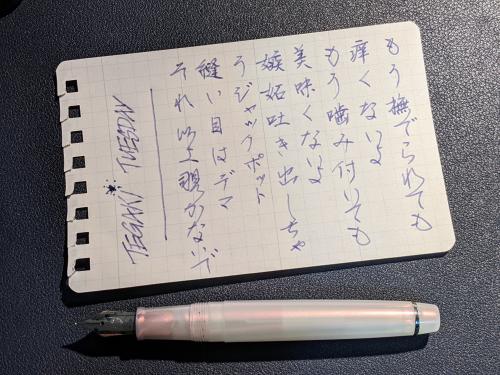 もう撫でられても
痒くないよ
もう噛み付いても
美味くないよ
嫉妬吐き出しちゃ
うジャックポット
縫い目はデマ
それ以上覗かないで
TEGAKI TUESDAY